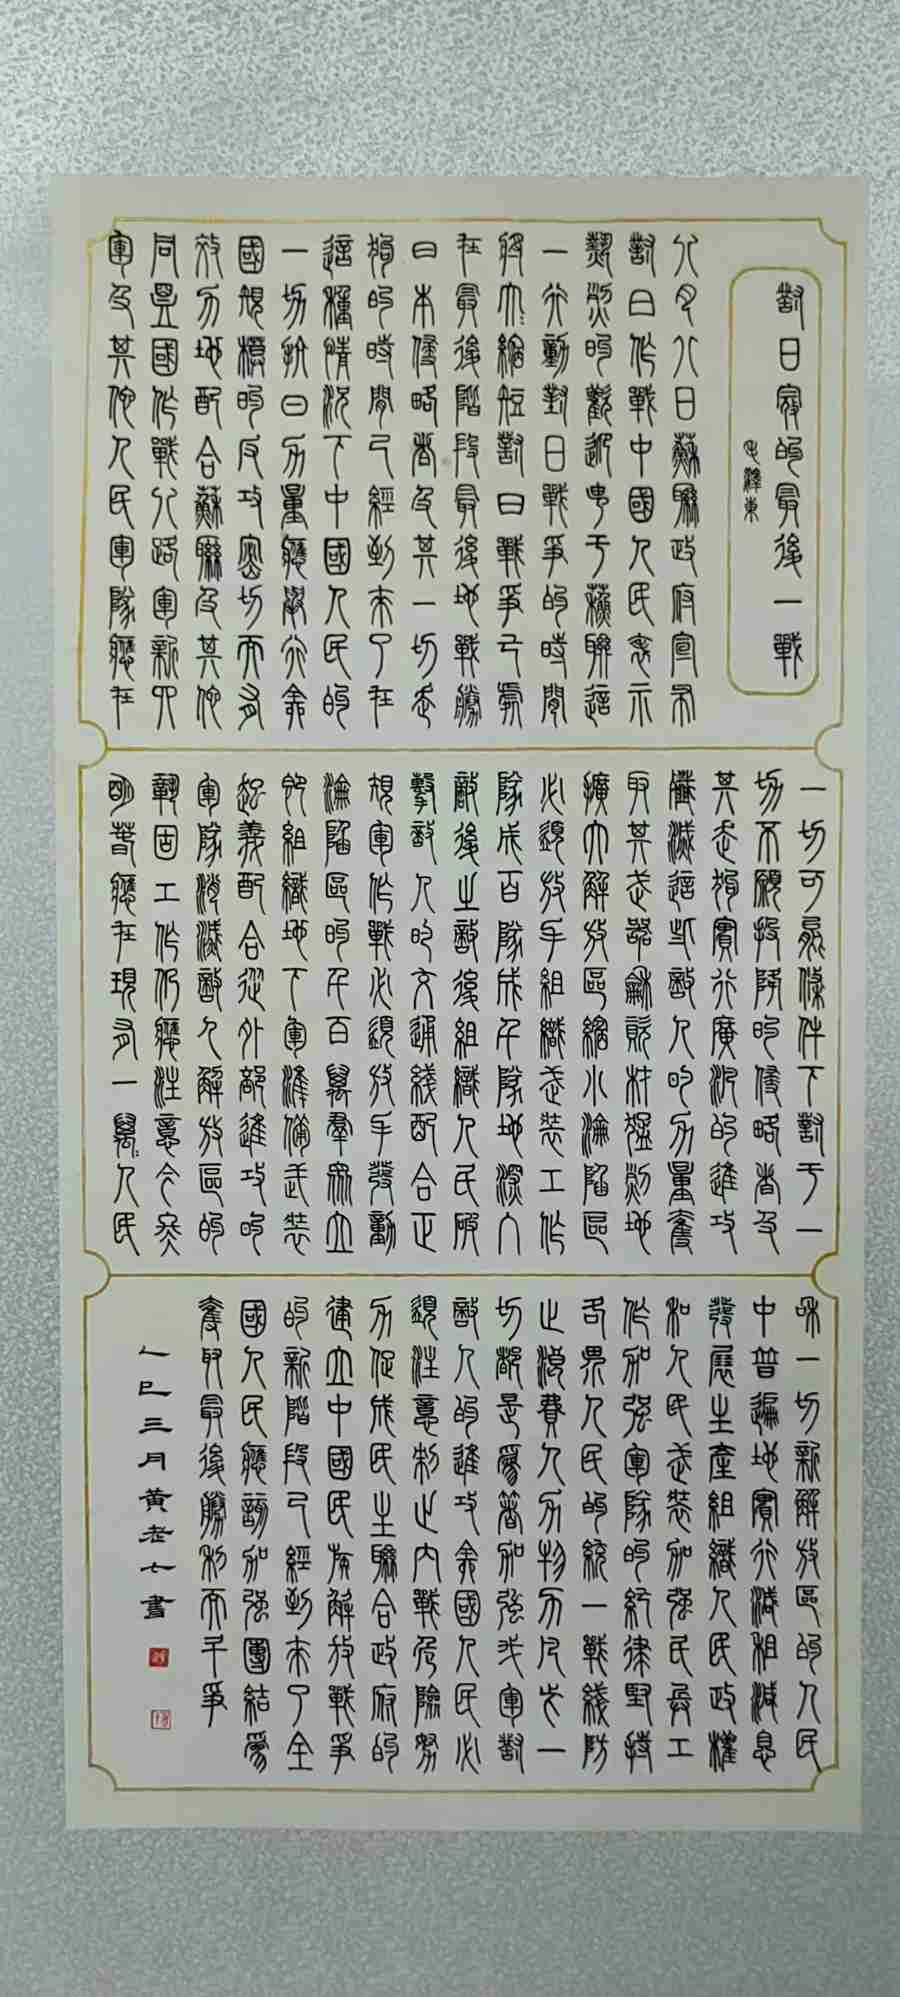 對日寇的最後一戰
毛澤東
八月八日蘇聯政府宣布
對日作戰中國人民表示
熱烈的歡迎由于蘇聯這
一行動對日戰爭的時間
將大〻縮短對日戰爭已處
在最後階段最後地戰勝
日本侵略者及其一切走
狗的時間已經到來了在
這種情況下中國人民的
一切抗日力量應舉行全
國規模的反攻密切而有
效力地配合蘇聯及其他
同盟國作戰八路軍新四
軍及其他人民軍隊應在
一切可能條件下對于一
切不願投降的侵略者及
其走狗實行廣泛的進攻
殲滅這些敵人的力量奪
取其武器和資材猛烈地
擴大解放區縮小淪陷區
必須放手組織武裝工作
隊成百隊成千隊地深入
敵後之敵後組織人民破
擊敵人的交通線配合正
規軍作戰必須放手發動
淪陷區的千百萬群眾立
即組織地下軍準備武裝
起義配合從外部進攻的
軍隊消滅敵人解放區的
鞏固工作仍應注意今冬
明春應在現有一萬〻人民
和一切新解放區的人民
中普遍地實行減租減息
發展生產組織人民政權
和人民武裝加強民兵工
作加強軍隊的紀律堅持
各界人民的統一戰線防
止浪費人力物力凡此一
切都是為著加強我軍對
敵人的進攻全國人民必
須注意制止內戰危險努
力促成民主聯合政府的
建立中國民族解放戰爭
的新階段已經到來了全
國人民應該加強團結為
奪取最後勝利而鬥爭
乙巳三月黃老七書